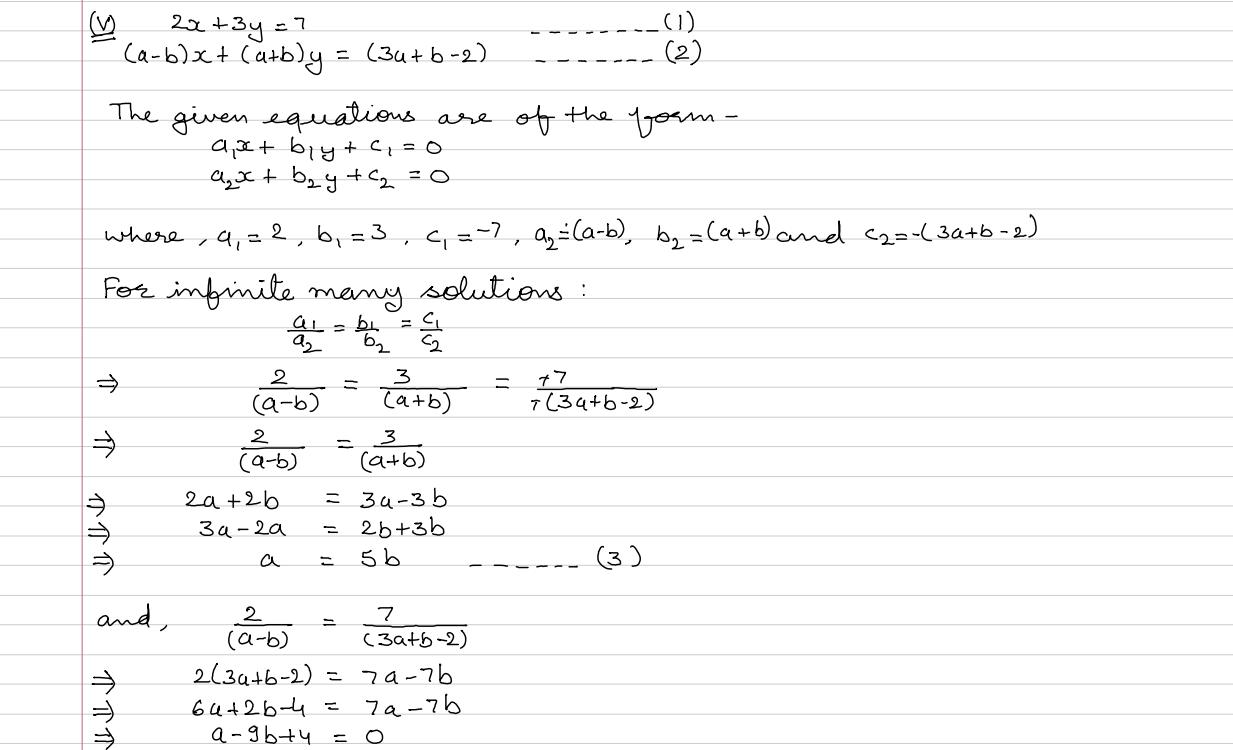 (V) 2x+3y=7 --------(1)
(a-b)x+(a+b)y = (3a+b-2) ------- (2)
The given equations are of the form-
a₁x+ b₁y + c₁ = 0
a₂x + b₂y +c₂ = 0
where , a₁ = 2 , b₁ = 3 , c₁ = -7 , a₂=(a-b), b₂ = (a+b) and c₂=-(3a+b-2)
For infinite many solutions :
a₁/a₂ = b₁/b₂ = c₁/c₂
⇒ 2/(a-b) = 3/(a+b) = +7/+(3a+b-2)
⇒ 2/(a-b) = 3/(a+b)
⇒ 2a+2b = 3a-3b
⇒ 3a-2a = 2b+3b
⇒ a = 5b ------ (3)
and, 2/(a-b) = 7/(3a+b-2)
⇒ 2(3a+b-2) = 7a-7b
⇒ 6a+2b-4 = 7a-7b
⇒ a-9b+4 = 0